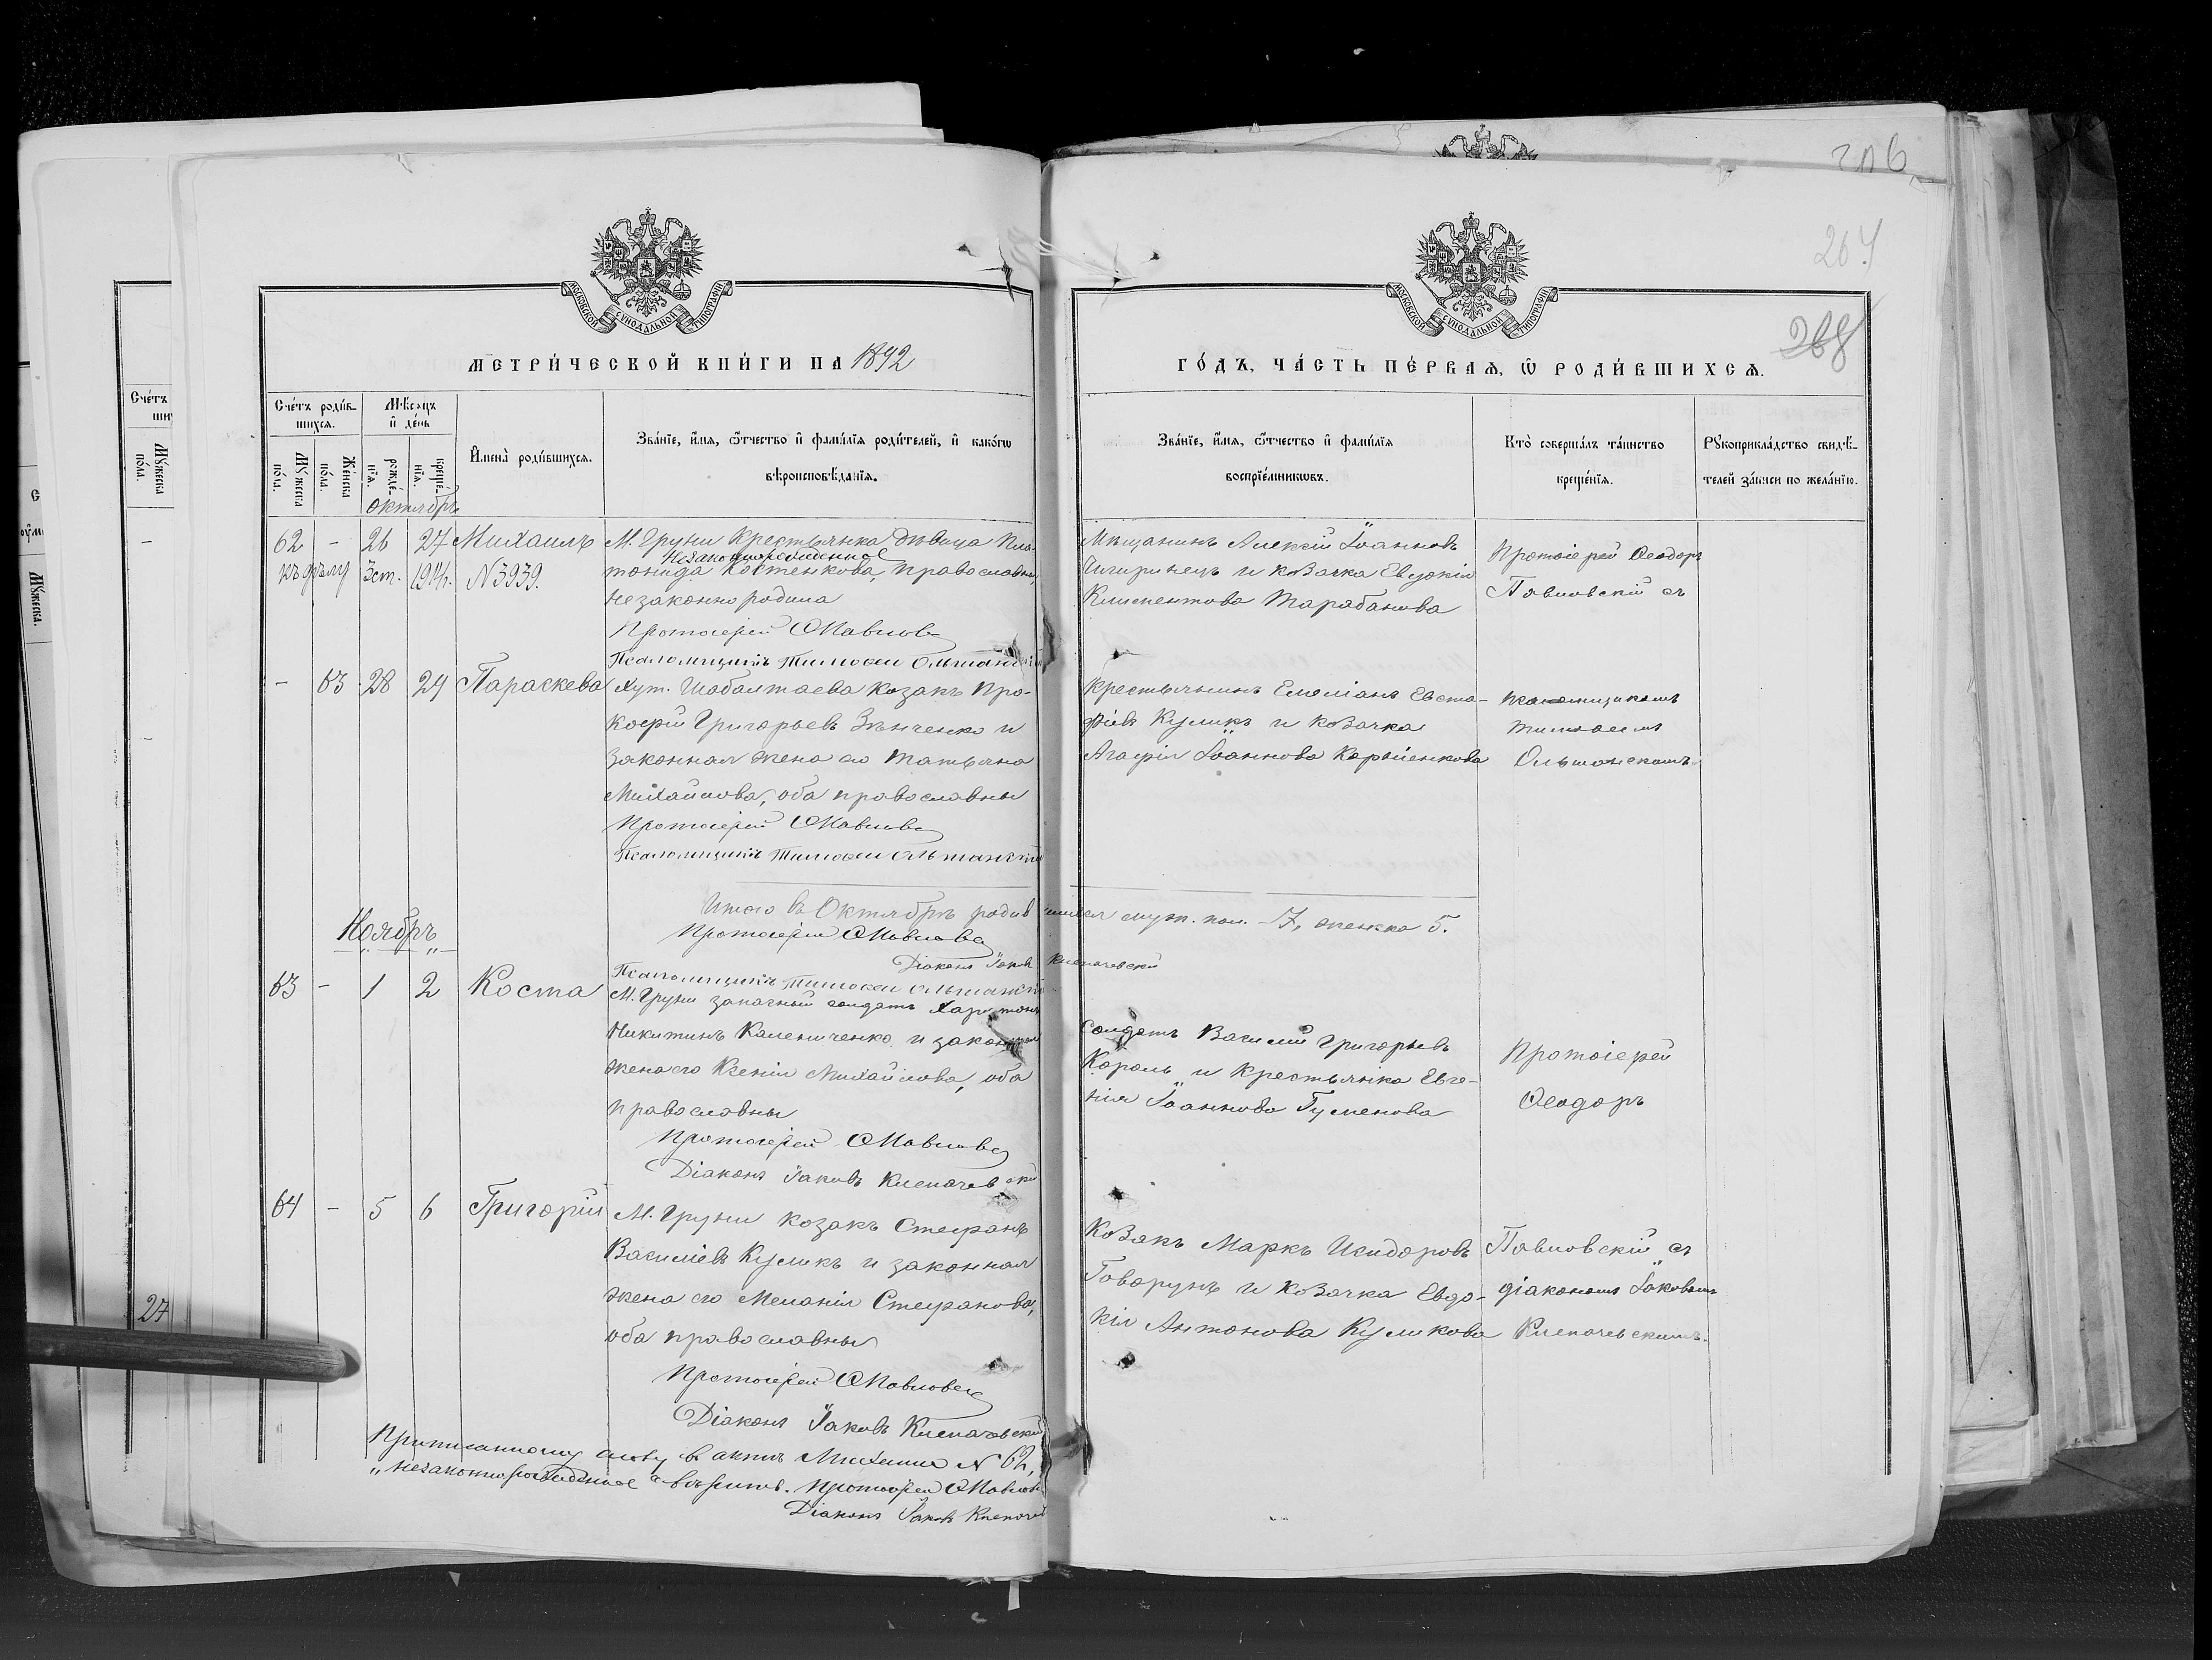 МЕТРИ́ЧЕСКОЙ КНИ́ГИ НА 1892
ГО́ДЪ, ЧА́СТЬ ПЕ́РВАѦ, Ѡ РОДИ́ВШИХСѦ.
МОСКОВСКОЙ СѴНОДАЛЬНОЙ ТИПОГРАФІИ
МОСКОВСКОЙ СѴНОДАЛЬНОЙ ТИПОГРАФІИ
264
268
Сче́тъ роди́в-
шихсѧ.
Мѣ́сѧцъ
и҆ де́нь
И҆мена̀ роди́вшихсѧ.
Зва́нїе, и҆́мѧ, ѻ҆́тчество и҆ фами́лїѧ роди́телей, и҆ како́гѡ
вѣроисповѣ́данїѧ.
Зва́нїе, и҆́мѧ, ѻ҆́тчество и҆ фами́лїѧ
воспрїе́мникѡвъ.
Кто̀ соверша́лъ та́инство
креще́нїѧ.
Рꙋкоприкла́дство свидѣ́-
телей за́писи по жела́нїю.
Мꙋ́жеска
по́ла.
Же́нска
по́ла.
рожде́-
нїѧ.
креще́-
нїѧ.
Октябрь
62 - 26 27 Михаилъ
М. Груни крестьянка девица Пла-
незаконнорожденное
къ дѣлу 3 ст. N 3939.
тонида Костенкова, православна,
незаконно родила
Протоіерей Ѳ Павловс
Псаломщикъ Тимоѳей Ольшанскій
Мѣщанинъ Алексій Іоанновъ
Чигиринецъ и козачка Евдокія
Климентова Тарабанова
Протоіерей Ѳеодоръ
Павловскій съ
- 63 28 29 Параскева
Хут. Шабалтаева козакъ Про-
кофій Григорьевъ Зѣнченко и
законная жена его Татьяна
Михайлова, оба православны
Протоіерей Ѳ Павловс
Псаломщикъ Тимоѳей Ольшанскій
Крестьянинъ Емеліанъ Евста-
фіевъ Куликъ и козачка
Агафія Іоаннова Карпенкова
псаломщикомъ
Тимоѳеемъ
Ольшанскимъ.
Итого въ Октябрѣ родившихся муж. пол. - 7, женска 5.
Протоіерей Ѳ Павловс
Діаконъ Іаковъ Клепачевскій
Псаломщикъ Тимоѳей Ольшанскій
Ноябрь
63 - 1 2 Косма
М. Груни запасный солдатъ Харитонъ
Никитинъ Калениченко и законная
жена его Ксенія Михайлова, оба
православны
Протоіерей Ѳ Павловс
Діаконъ Іаковъ Клепачевскій
Солдатъ Василій Григорьевъ
Король и крестьянка Евге-
нія Іоаннова Гуменова
Протоіерей
Ѳеодоръ
64 - 5 6 Григорій
М. Груни козакъ Стефанъ
Василіевъ Куликъ и законная
жена его Меланія Стефанова,
оба православны
Протоіерей Ѳ Павловс
Діаконъ Іаковъ Клепачевскій
Козакъ Маркъ Исидоровъ
Говорунъ и козачка Евдо-
кія Антонова Куликова
Павловскій съ
діакономъ Іаковомъ
Клепачевскимъ.
Приписанному слову въ актѣ Михаила N 62,
„незаконнорожденное“ вѣрить. Протоіерей Ѳ Павловс
Діаконъ Іаковъ Клепачев
27